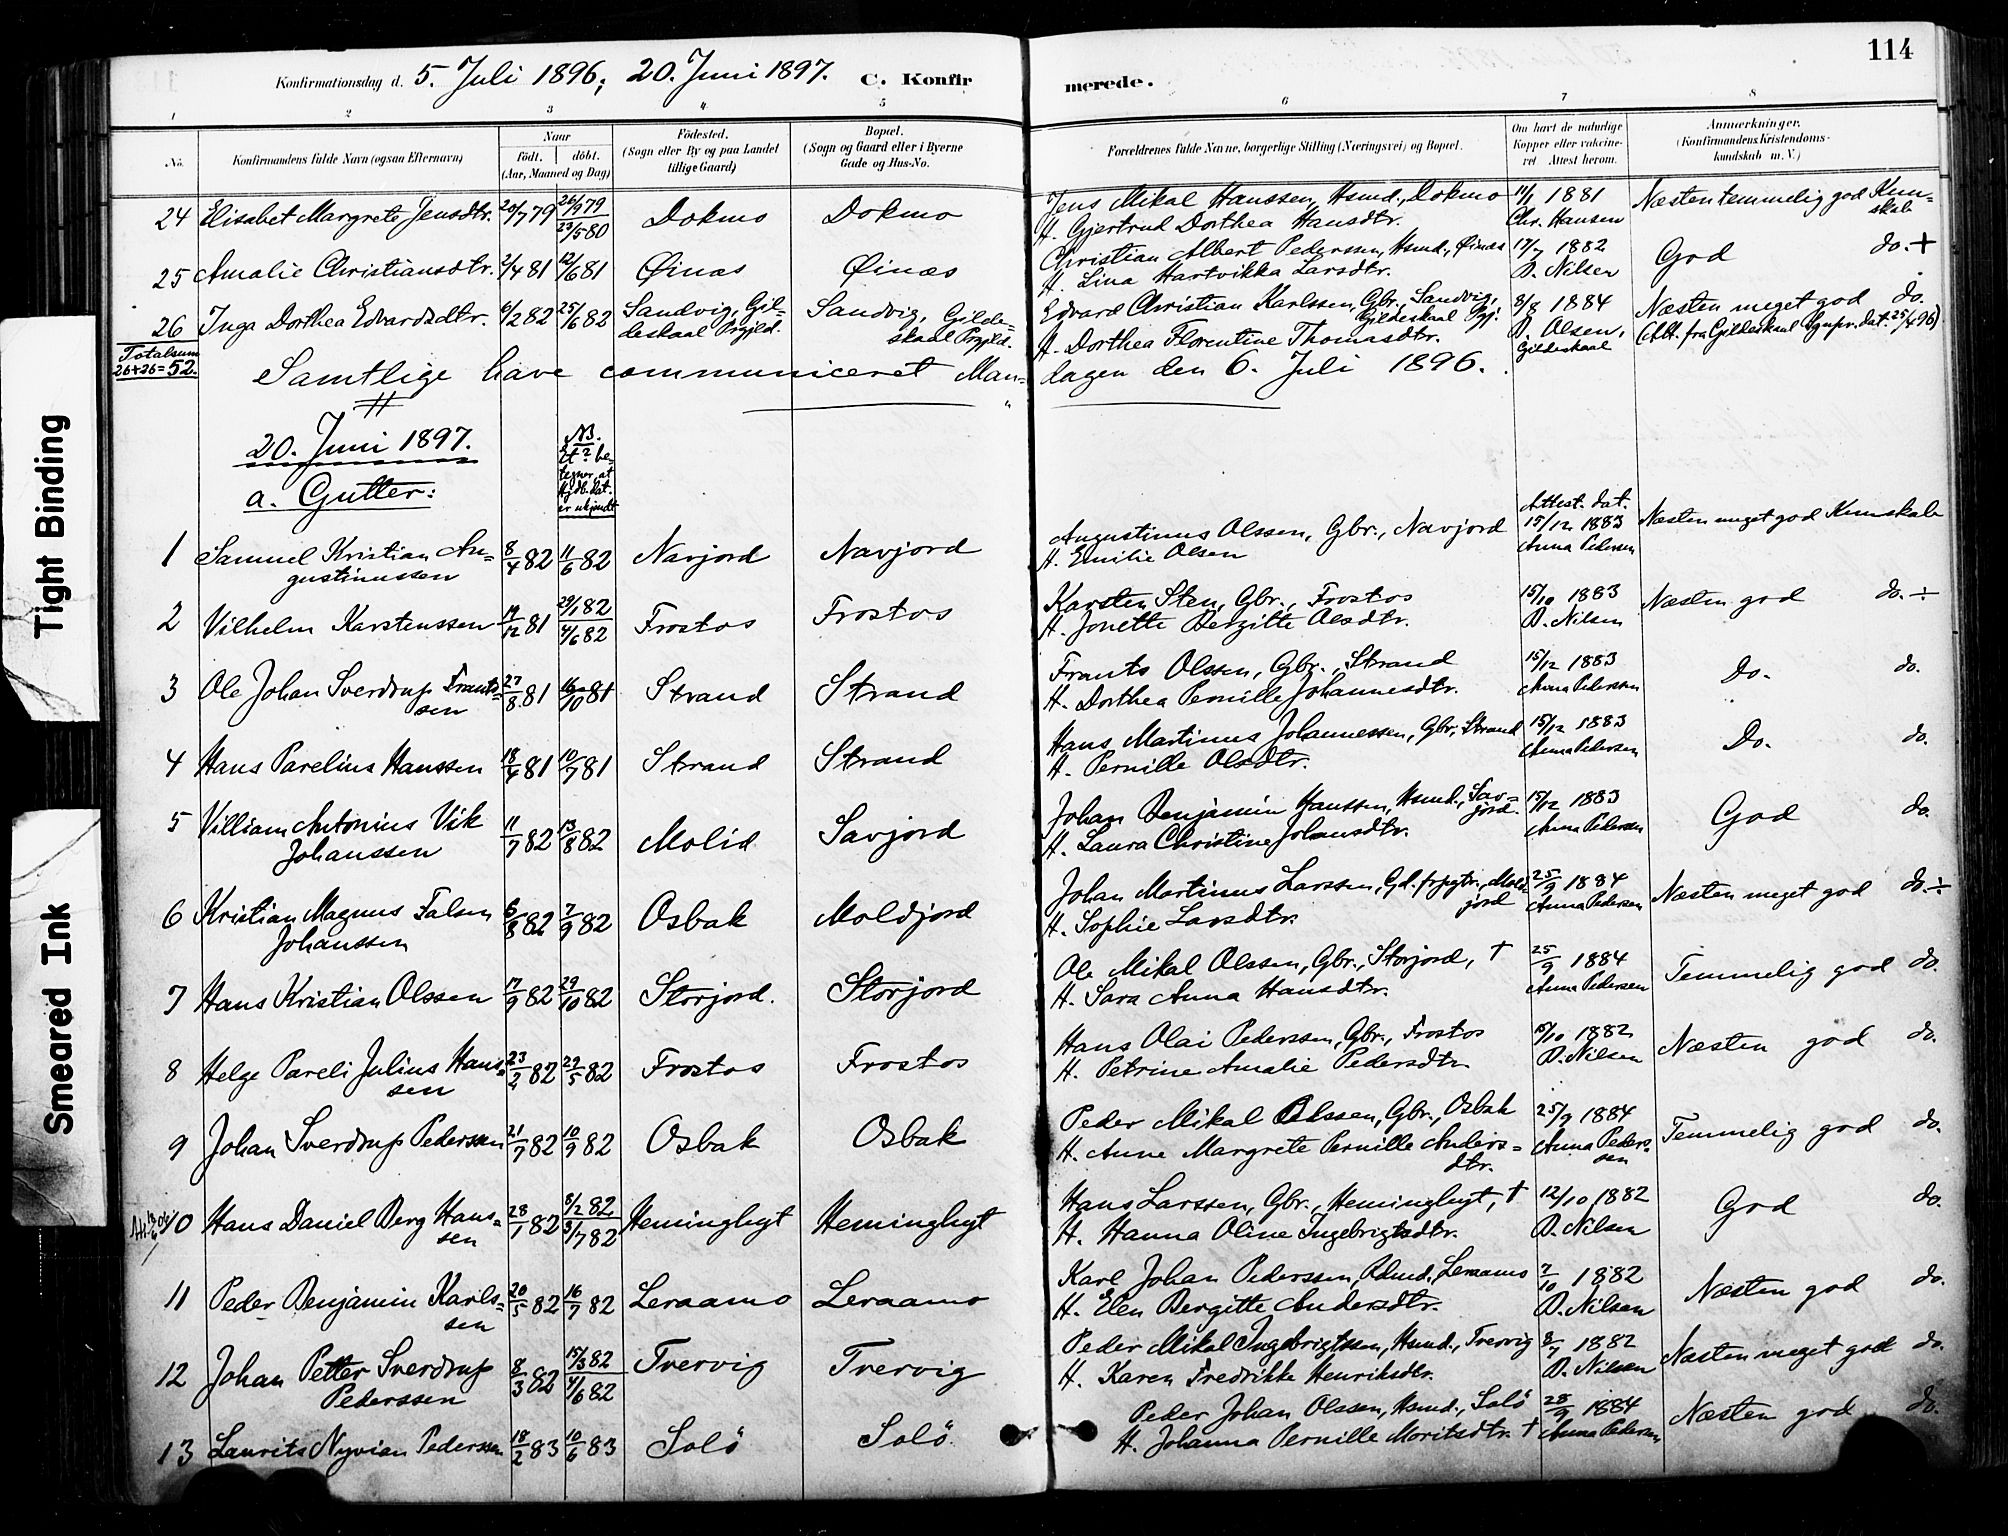 114
Konfirmationsdag d. 5. Juli 1896; 20. Juni 1897. C. Konfirmerede.
1 2 3 4 5 6 7 8
No. Konfirmandens fulde Navn (ogsaa Efternavn) Naar födt. döbt. (Aar, Maaned og Dag) Födested. (Sogn eller By og paa Landet tillige Gaard) Bopæl. (Sogn og Gaard eller i Byerne Gade og Hus-No. Forældrenes fulde Navne, borgerlige Stilling (Næringsvei) og Bopæl. Om havt de naturlige Kopper eller vaccineret Attest herom. Anmærkninger. (Konfirmandens Kristendomskundskab m. V.)
24 Elisabet Margrete Jensdtr. 20/7 79 26/9 79 Dokmo Dokmo Jens Mikal Hanssen, Hsmd., Dokmo 11/1 1881 Næsten temmelig god Kundskab
23/5 80 H. Gjertrud Dorthea Hansdtr. Chr. Hansen
25 Amalie Christiansdtr. 2/4 81 12/6 81 Øinæs Øinæs Christian Albert Pedersen, Hsmd., Øinæs 17/7 1882 God do. +
H. Lina Hartvikka Larsdtr. D. Nilsen
26 Inga Dorthea Edvardsdtr. 6/2 82 25/6 82 Sandvig, Gil- Sandvig, Gilde- Edvard Christian Karlssen, Gbr., Sandvig, 8/8 1884 Næsten meget god do.
deskaal Prgjld. skaal Prgjld. Gildeskaal Pgj. D. Olsen, (Att. fra Gildeskaal Sgnpr. dat. 25/4 96)
H. Dorthea Florentine Thomasdtr. Gildeskaal
Totalsum
26+26=52.
Samtlige have communiceret Mandagen den 6. Juli 1896.
20. Juni 1897.
NB.
Et ? be-
tegner, at
Hjdb. dat.
er ukjendt
a. Gutter:
Attest. dat.
1 Samuel Kristian Au- 8/4 82 11/6 82 Navjord Navjord Augustinus Olssen, Gbr., Navjord 15/12 1883 Næsten meget god Kundskab
gustinussen H. Emilie Olsen Anna Pedersen
2 Vilhelm Karstenssen 17/12 81 29/1 82 Frostos Frostos Karsten Sten, Gbr., Frostos 15/10 1883 Næsten god do. ÷
4/6 82 H. Jonette Bergitte Olsdtr. D. Nilsen
3 Ole Johan Sverdrup Frants- 27/8 81 16/10 81 Strand Strand Frants Olssen, Gbr., Strand 15/12 1883 Do. do.
sen H. Dorthea Pernille Johannesdtr. Anna Pedersen
4 Hans Parelius Hanssen 18/4 81 10/7 81 Strand Strand Hans Martinus Johannessen, Gbr., Strand 15/12 1883 Do. do.
H. Pernille Olsdtr. Anna Pedersen
5 Villiam Antonius Vik 11/7 82 13/8 82 Molid Savjord Johan Benjamin Hanssen, Hsmd., Sav- 15/12 1883 God do.
Johanssen jord. H. Laura Christine Johansdtr. Anna Pedersen
6 Kristian Magnus Falsen 6/8 82 7/9 82 Osbak Moldjord Johan Martinus Larssen, Gd.forpgtr., Mold- 25/9 1884 Næsten meget god do. ÷
Johanssen jord H. Sophie Larsdtr. Anna Pedersen
7 Hans Kristian Olssen 17/9 82 29/10 82 Storjord. Storjord Ole Mikal Olssen, Gbr., Storjord, † 25/9 1884 Temmelig god do.
H. Sara Anna Hansdtr. Anna Pedersen
8 Helge Pareli Julius Hans- 23/2 82 29/5 82 Frostos Frostos Hans Olai Pederssen, Gbr., Frostos 15/10 1882 Næsten god do.
sen H. Petrine Amalie Pedersdtr D. Nilsen
9 Johan Sverdrup Pederssen 21/7 82 10/9 82 Osbak Osbak Peder Mikal Olssen, Gbr., Osbak 25/9 1884 Temmelig god do.
H. Anne Margrete Pernille Anders- Anna Peders-
dtr. sen
10 Hans Daniel Berg Hans- 28/1 82 8/2 82 Heminghyt Heminghyt Hans Larssen, Gbr., Heminghyt, † 12/10 1882 God do.
sen 3/7 82 H. Hanna Oline Ingebrigtsdtr. D. Nilsen
11 Peder Benjamin Karls- 20/5 82 16/7 82 Leraamo Leraamo Karl Johan Pederssen, Rdmd., Leraamo 7/10 1882 Næsten god do.
sen H. Elen Bergitte Andersdtr. D. Nilsen
12 Johan Petter Sverdrup 8/3 82 15/3 82 Tvervig Tvervig Peder Mikal Ingebrigtssen, Hsmd., Tvervig 8/7 1882 Næsten meget god do.
Pederssen 4/6 82 H. Karen Fredrikke Henriksdtr. D. Nilsen
13 Laurits Nyvian Pederssen 18/2 83 10/6 83 Solö Solö Peder Johan Olssen, Hsmd., Solö 28/9 1884 Næsten god do.
H. Johanna Pernille Moritsdtr. † Anna Pedersen
Tight Binding
Smeared Ink